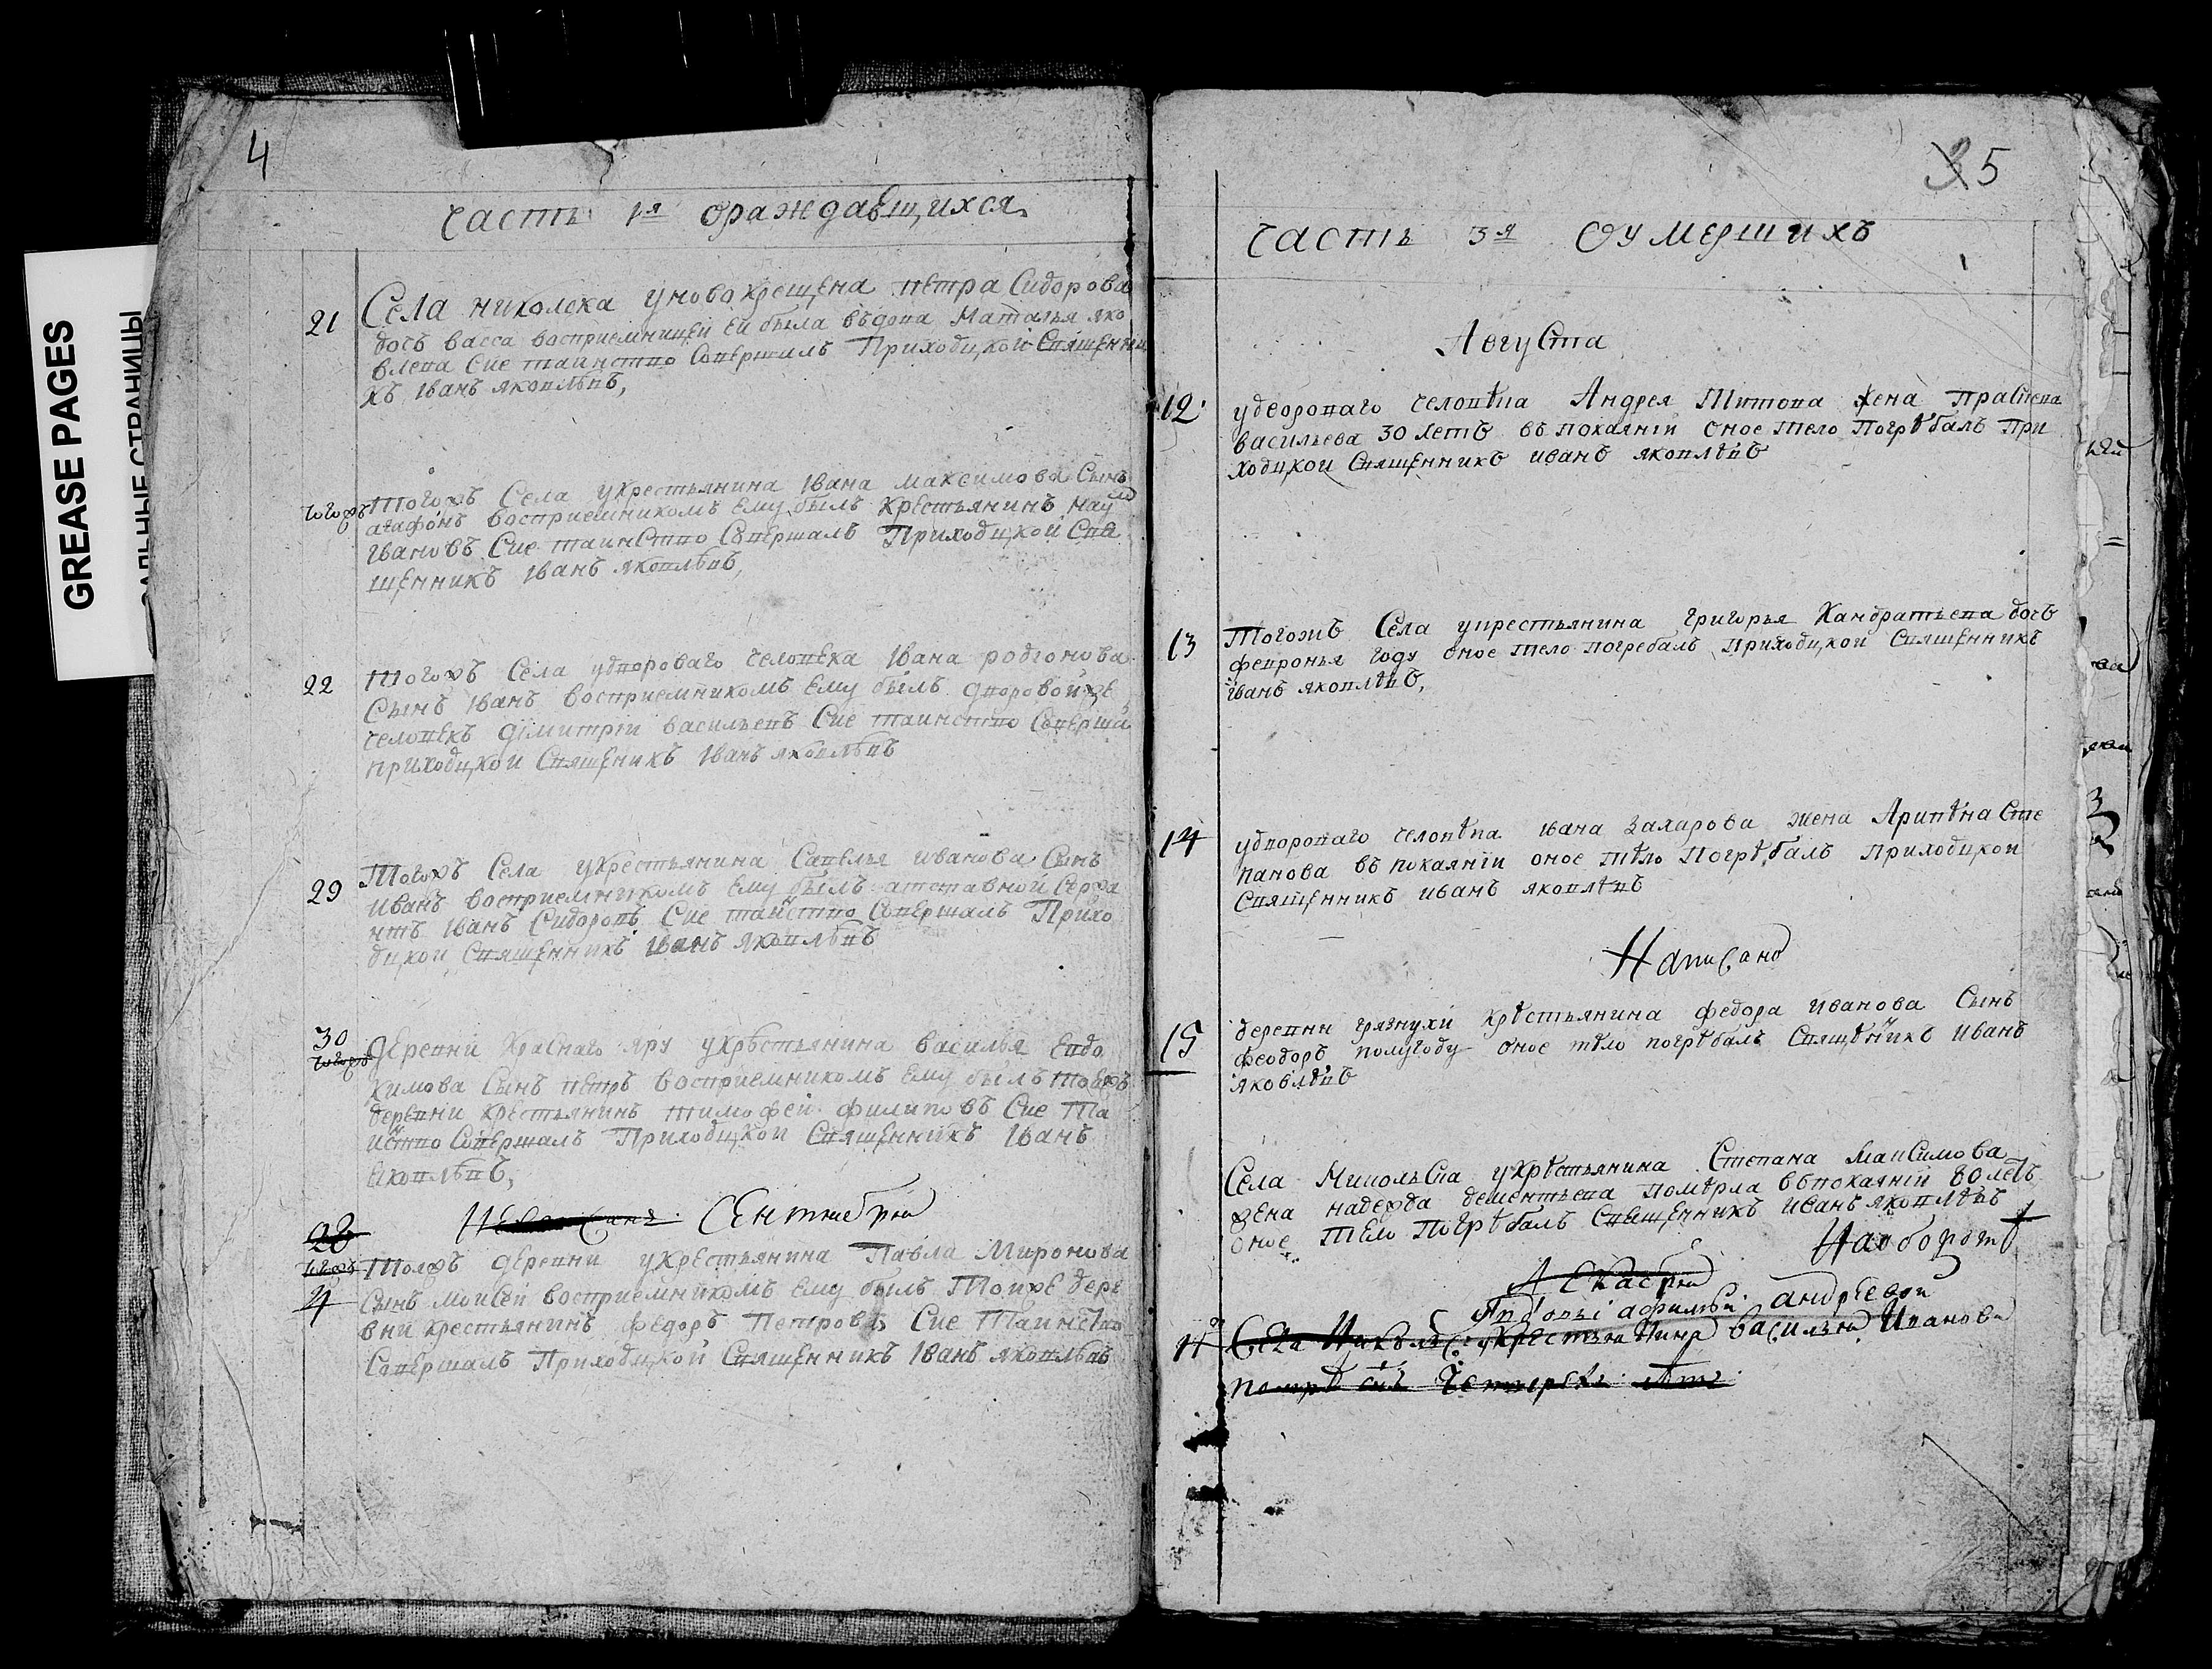 GREASE PAGES
САЛЬНЫЕ СТРАНИЦЫ
4
часть 1я ораждавшихся
21
Села николска уновокрещена петра Сидорова
дочь васса восприемницей ей была вѣдова Наталья яко
влева Сие таинство Совершалъ Приходцкой Священни
къ Іванъ яковлѣвъ,
тогожъ
Тогожъ Села укрестьянина Івана максимова Сынъ
агафонъ восприемникомъ ему былъ крестьянинъ
Івановъ Сие таинство Совершалъ Приходцкой Свя
щенникъ Іванъ яковлѣвъ,
22
Тогожъ Села удвороваго человека Івана родіонова
Сынъ Іванъ восприемникомъ ему былъ дворовой же
человекъ димитрій васильевъ Сие таинство Соверша
приходцкои Священикъ Іванъ яковлѣвъ
29
Тогожъ Села укрестьянина Савелья иванова Сынъ
Иванъ восприемникомъ ему былъ атставной Сержа
нтъ Іванъ Сидоровъ Сие таинство Совершалъ Прихо
дцкои Священникъ Іванъ яковлѣвъ
30
тогожъ
деревни Краснаго яру укрѣстьянина василья Евдо
кимова Сынъ петръ восприемникомъ ему былъ тоежъ
деревни крестьянинъ тимофей филиповъ Сие Та
инство Совершалъ Приходцкои Священникъ Іванъ
Яковлѣвъ,
Сентября
28
4
Тоежъ деревни укрестьянина Павла Миронова
Сынъ моисей восприемникомъ ему былъ Тойже дере
вни крестьянинъ федоръ Петровъ Сие Таинство
Совершалъ Приходцкой Священникъ Іванъ яковлѣвъ
5
часть 3я оумершихъ
Августа
12
удвороваго человѣка Андрея Титова жена Праскева
васильева 30 летъ въ покаяніи оное тело Погрѣбалъ При
ходцкои Священникъ иванъ яковлѣвъ
13
Тогожъ Села укрестьянина григорья Кандратьева дочь
февронья году оное тело погребалъ Приходцкой Священникъ
Іванъ яковлѣвъ,
14
удвороваго человѣка ивана Захарова жена Аринѣна Сте
панова въ покаяніи оное тѣло Погрѣбалъ Приходцкои
Священникъ иванъ яковлѣвъ
Написано
15
деревни грязнухи крѣстьянина федора иванова Сынъ
феодоръ полугоду оное тѣло погрѣбалъ Священникъ иванъ
яковлѣвъ
Села Никольска укрѣстьянина Степана максимова
жена надежда дементьева помѣрла въ покаяніи 80 летъ
оное Тѣло Погрѣбалъ Священникъ иванъ яковлѣвъ
На оборотѣ
Декабря
андреевой
Села Никольск укрестьянина василья Иванова